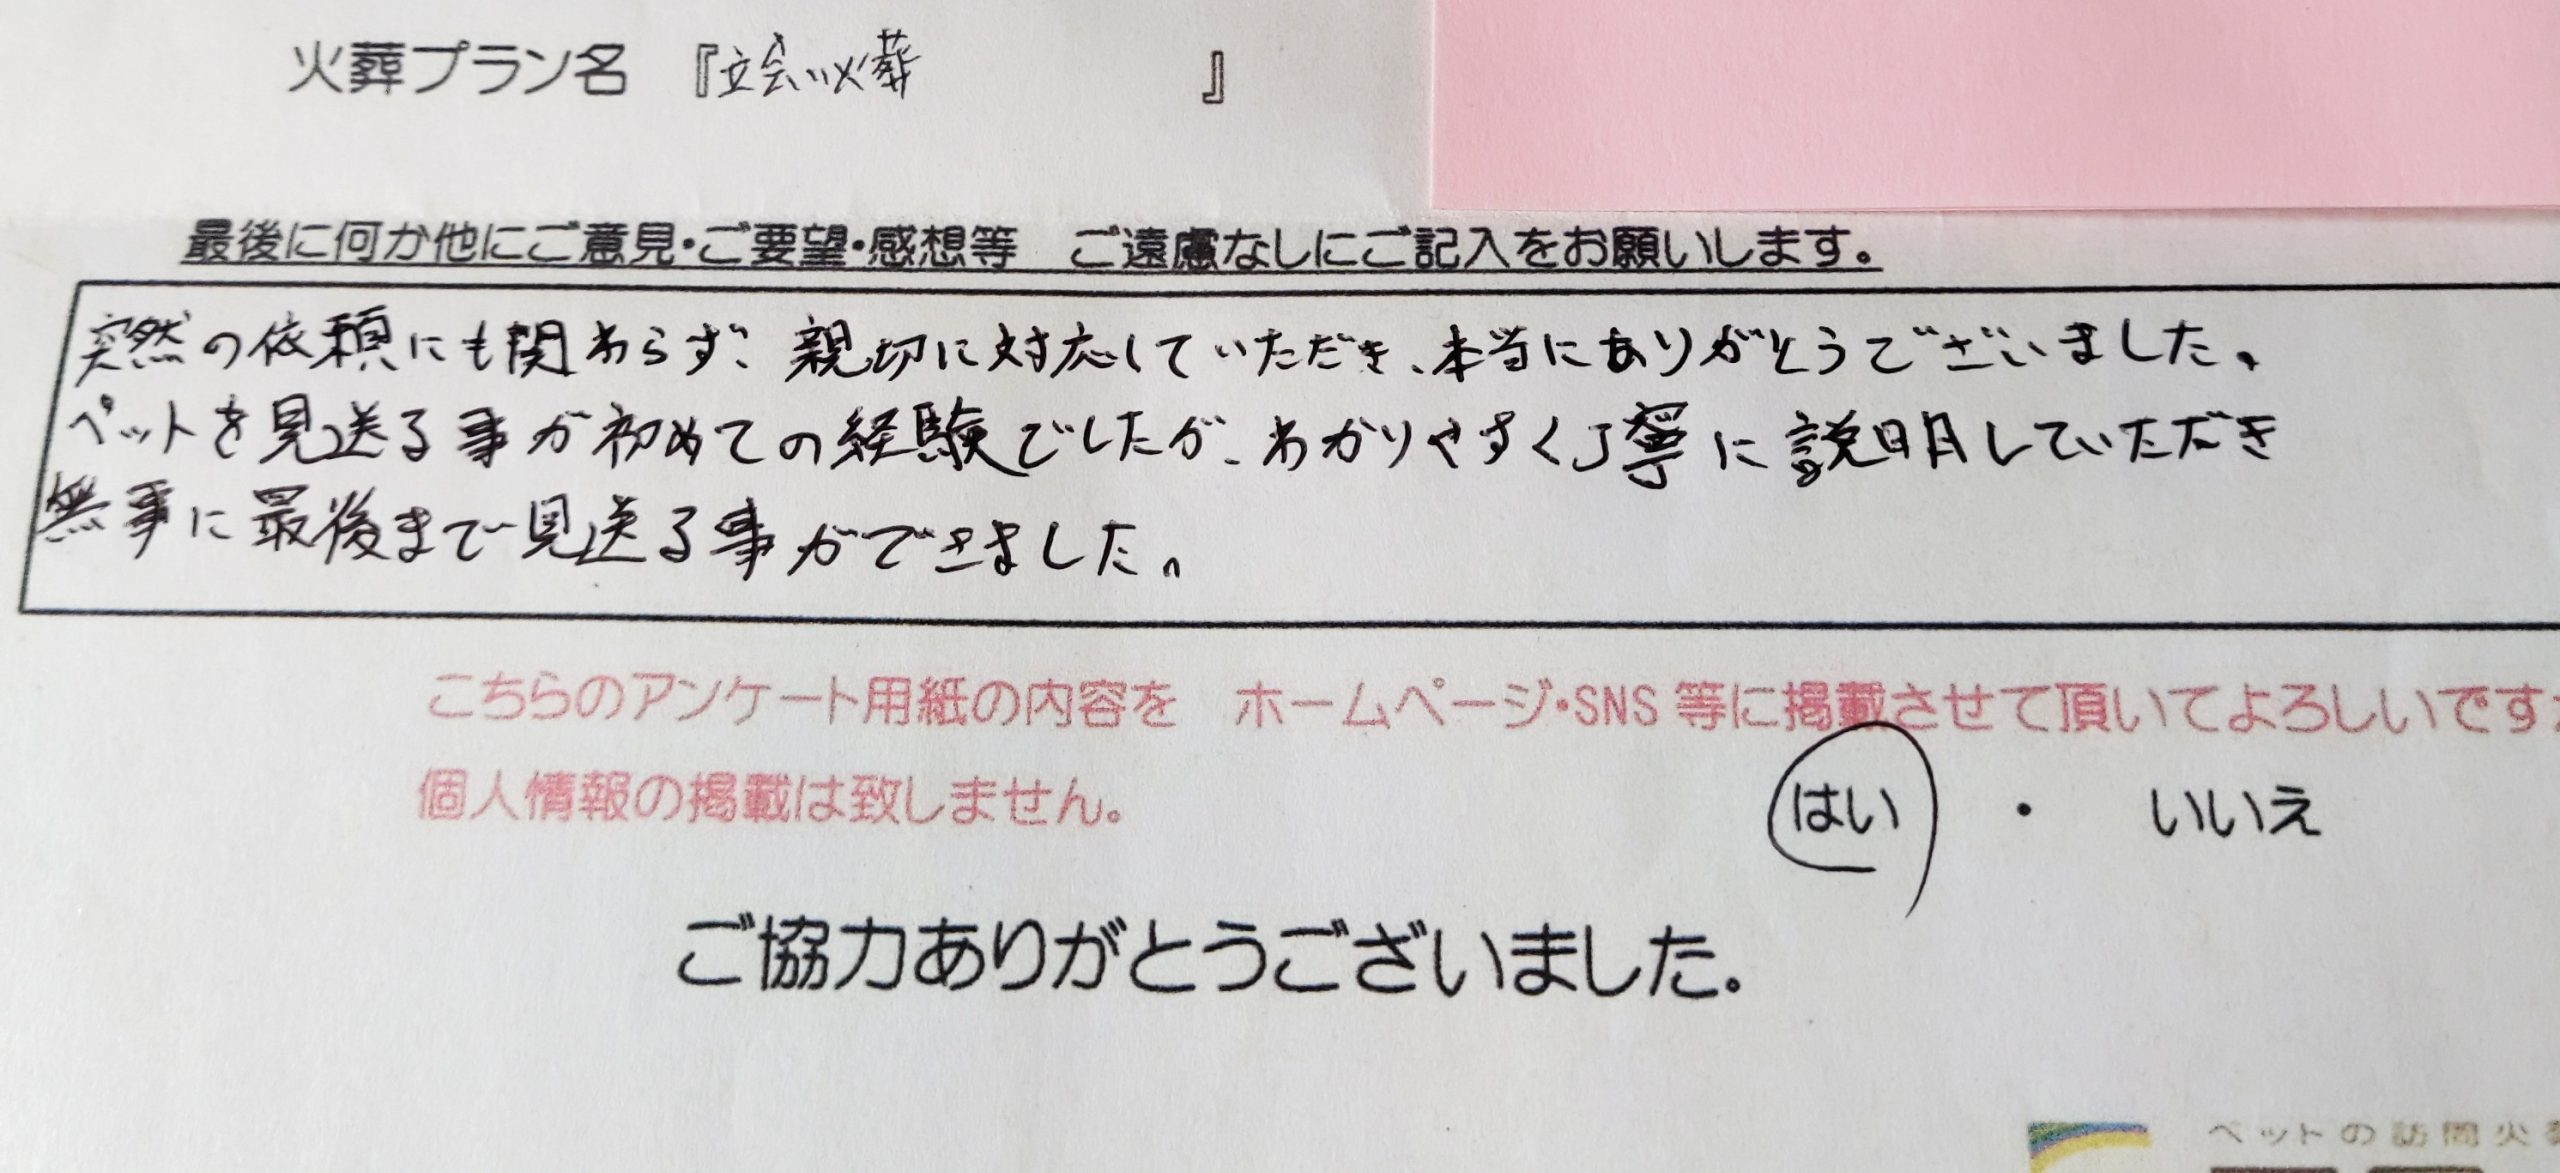 火葬プラン名 『立会い火葬 』
最後に何か他にご意見・ご要望・感想等 ご遠慮なしにご記入をお願いします。
突然の依頼にも関わらず、親切に対応していただき、本当にありがとうでございました。
ペットを見送る事が初めての経験でしたが、わかりやすく丁寧に説明していただき
無事に最後まで見送る事ができました。
こちらのアンケート用紙の内容を ホームページ・SNS 等に掲載させて頂いてよろしいです
個人情報の掲載は致しません。
はい ・ いいえ
ご協力ありがとうございました。
ペットの訪問火